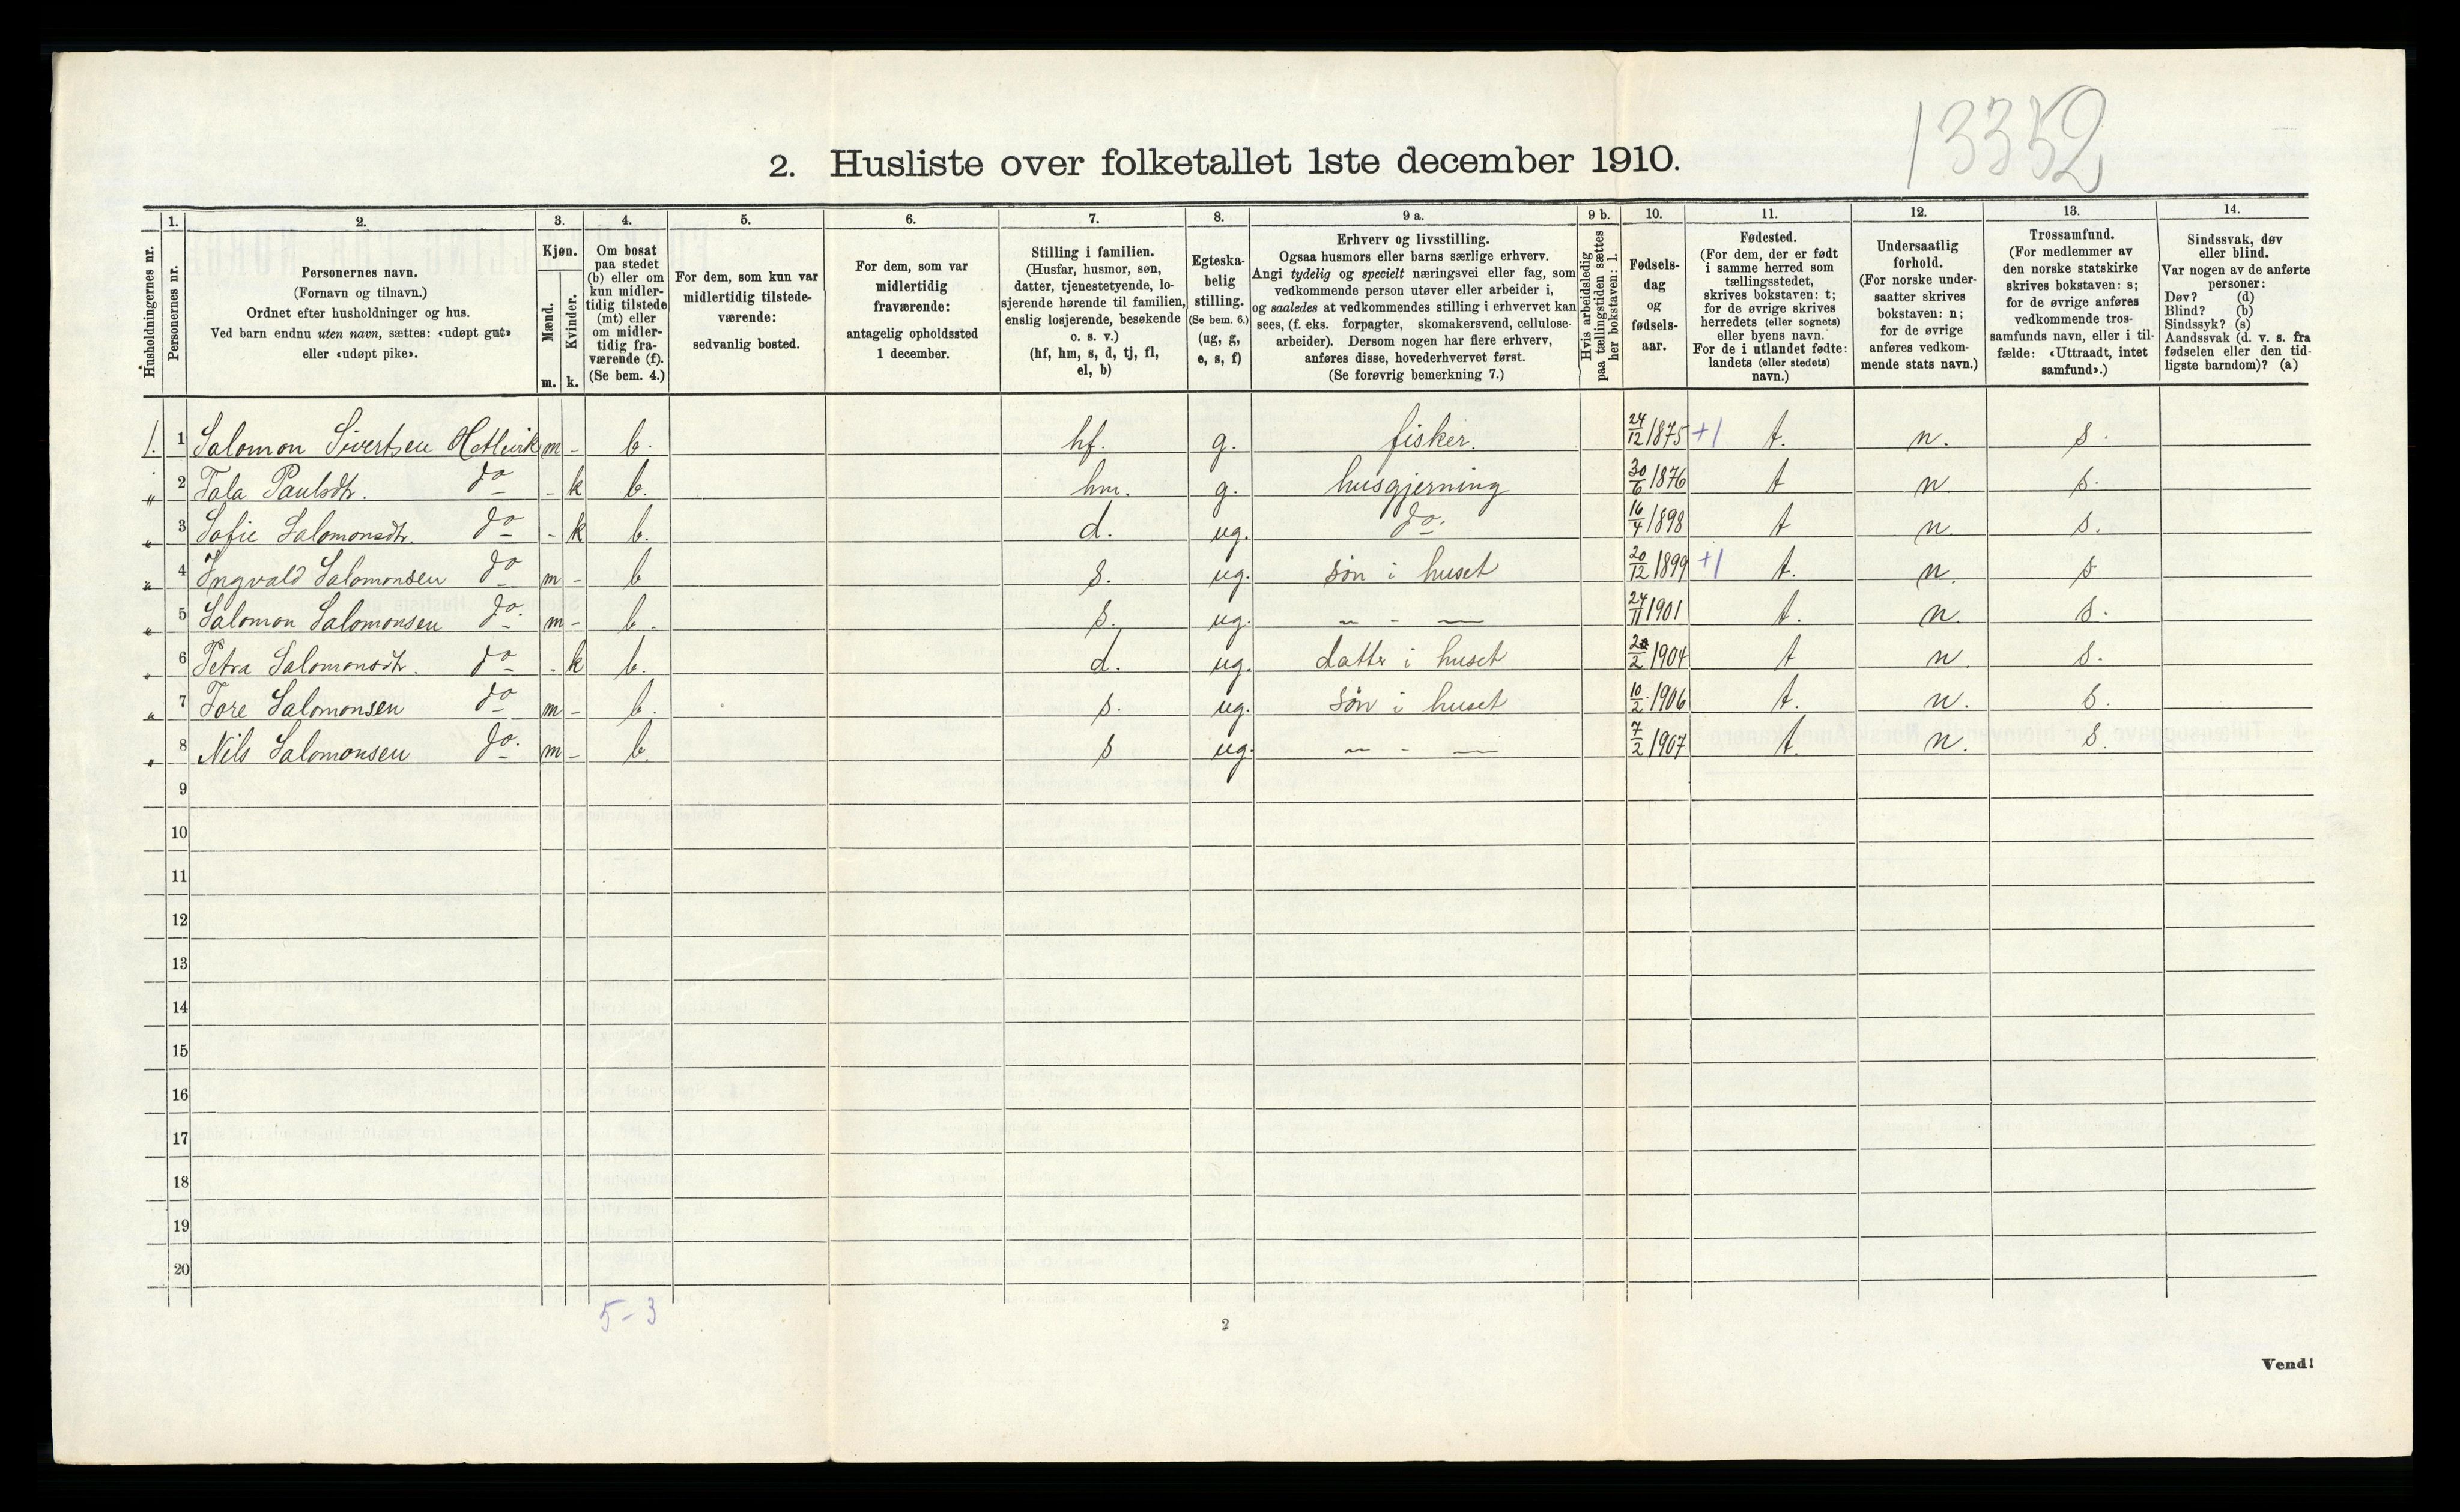 13352
2. Husliste over folketallet 1ste december 1910.
Husholdningernes nr.
1.
Personernes nr.
2.
Personernes navn.
(Fornavn og tilnavn.)
Ordnet efter husholdninger og hus.
Ved barn endnu uten navn, sættes: «udøpt gut»
eller «udøpt pike».
3.
Kjøn.
Mænd.
Kvinder.
m. k.
4.
Om bosat
paa stedet
(b) eller om
kun midler-
tidig tilstede
(mt) eller
om midler-
tidig fra-
værende (f).
(Se bem. 4.)
5.
For dem, som kun var
midlertidig tilstede-
værende:
sedvanlig bosted.
6.
For dem, som var
midlertidig
fraværende:
antagelig opholdssted
1 december.
7.
Stilling i familien.
(Husfar, husmor, søn,
datter, tjenestetyende, lo-
sjerende hørende til familien,
enslig losjerende, besøkende
o. s. v.)
(hf, hm, s, d, tj, fl,
el, b)
8.
Egteska-
belig
stilling.
(Se bem. 6.)
(ug, g,
e, s, f)
9 a.
Erhverv og livsstilling.
Ogsaa husmors eller barns særlige erhverv.
Angi tydelig og specielt næringsvei eller fag, som
vedkommende person utøver eller arbeider i,
og saaledes at vedkommendes stilling i erhvervet kan
sees, (f. eks. forpagter, skomakersvend, cellulose-
arbeider). Dersom nogen har flere erhverv,
anføres disse, hovederhvervet først.
(Se forøvrig bemerkning 7.)
9 b.
Hvis arbeidsledig
paa tællingstiden sættes
her bokstaven: l.
10.
Fødsels-
dag
og
fødsels-
aar.
11.
Fødested.
(For dem, der er født
i samme herred som
tællingsstedet,
skrives bokstaven: t;
for de øvrige skrives
herredets (eller sognets)
eller byens navn.
For de i utlandet fødte:
landets (eller stedets)
navn.)
12.
Undersaatlig
forhold.
(For norske under-
saatter skrives
bokstaven: n;
for de øvrige
anføres vedkom-
mende stats navn.)
13.
Trossamfund.
(For medlemmer av
den norske statskirke
skrives bokstaven: s;
for de øvrige anføres
vedkommende tros-
samfunds navn, eller i til-
fælde: «Uttraadt, intet
samfund».)
14.
Sindssvak, døv
eller blind.
Var nogen av de anførte
personer:
Døv? (d)
Blind? (b)
Sindssyk? (s)
Aandssvak (d. v. s. fra
fødselen eller den tid-
ligste barndom)? (a)
1. 1 Salomon Sivertsen Hatlevik m - b. hf. g. fisker. 24/12 1875 +1 t. n. s.
" 2 Tala Paulsdtr. do - k b. hm. g. husgjerning 30/6 1876 t n. s.
" 3 Sofie Salomonsdtr. do - k b. d. ug. do. 16/4 1898 t n. s.
" 4 Ingvald Salomonsen do m - b s. ug. søn i huset 20/12 1899 +1 t. n. s
" 5 Salomon Salomonsen do. m - b. s. ug. — - — 24/11 1901 t. n. s.
" 6 Petra Salomonsdtr. do - k b. d. ug. datter i huset 2/2 1904 t n. s.
" 7 Tore Salomonsen do m - b. s. ug. søn i huset 10/2 1906 t. n. s.
" 8 Nils Salomonsen do. m - b. s ug. — - — 7/2 1907 t. n. s.
9
10
11
12
13
14
15
16
17
18
19
20
5 - 3
2
Vend!